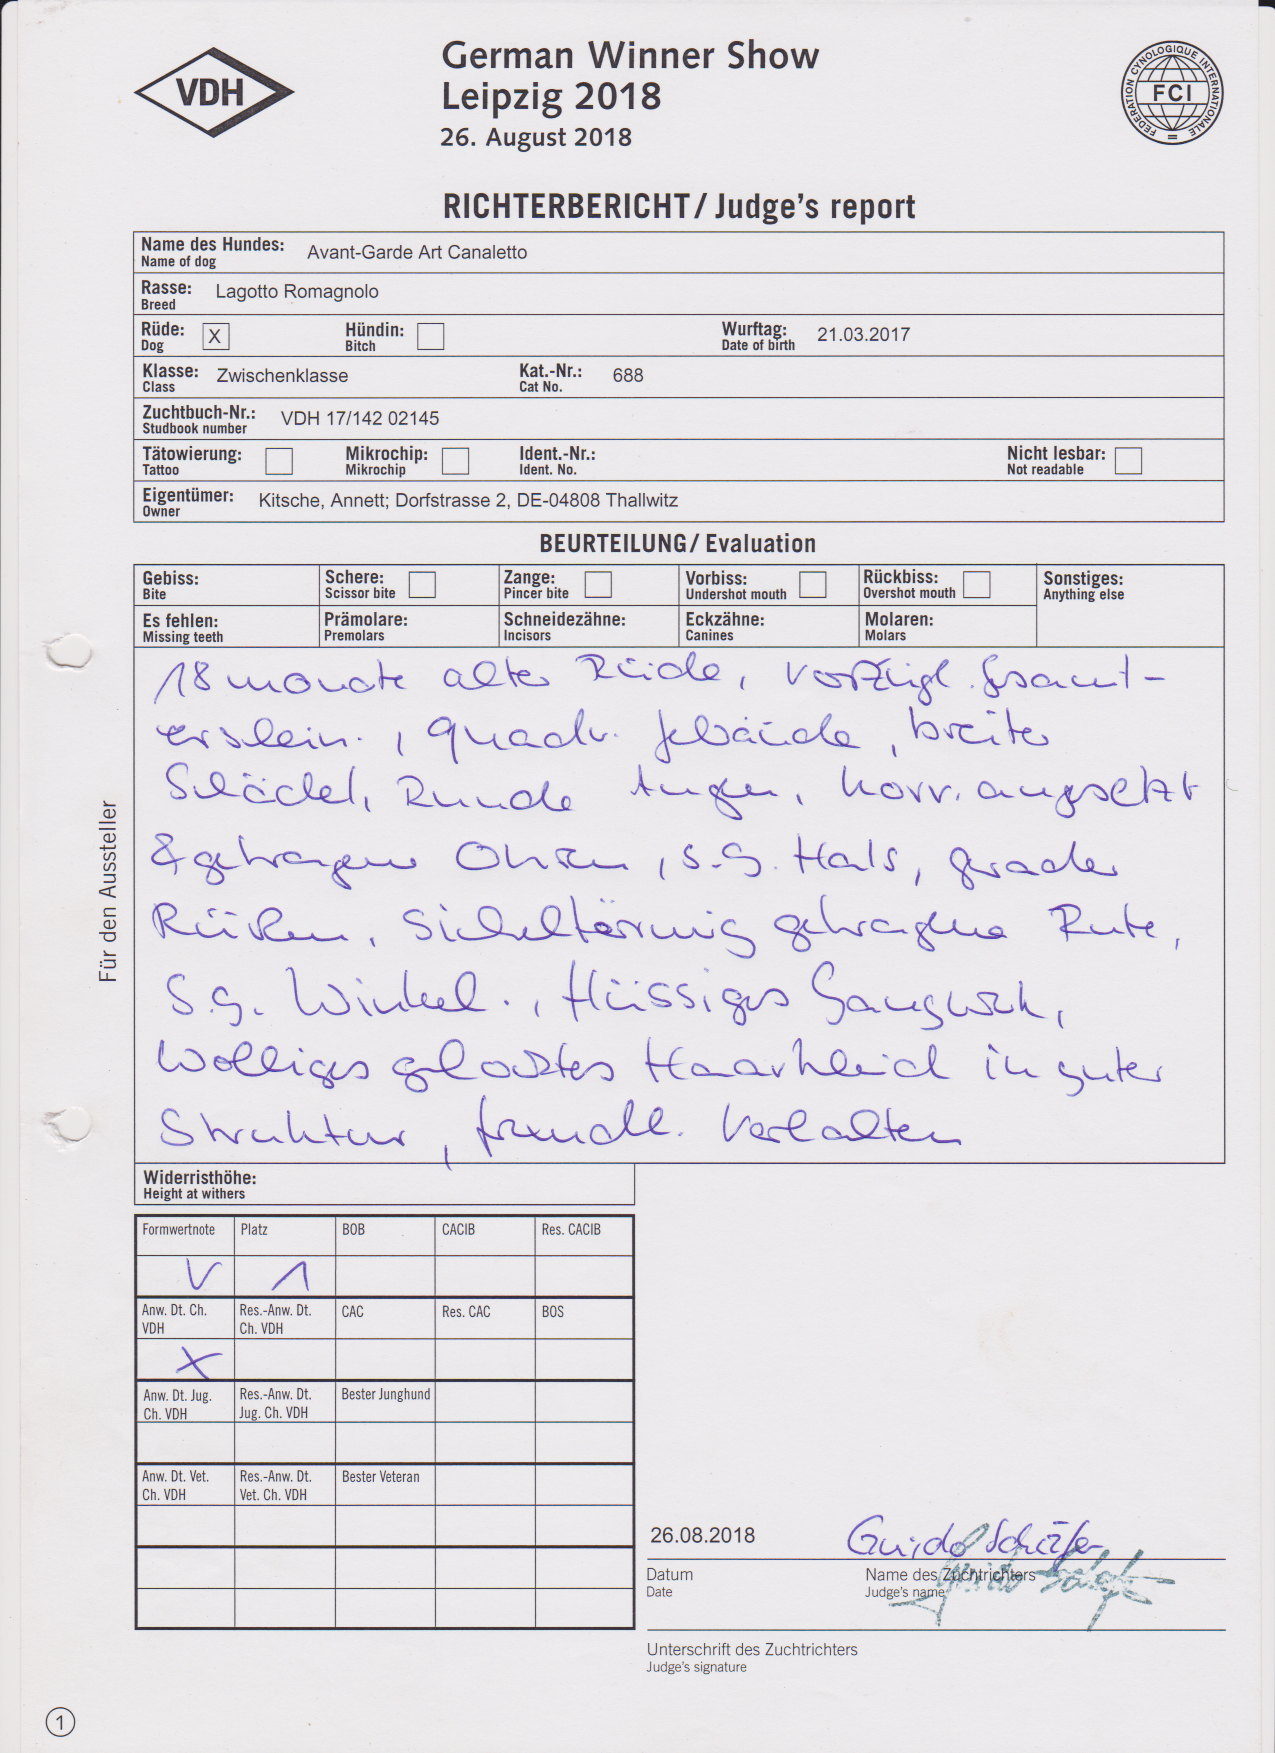 VDH
German Winner Show
Leipzig 2018
26. August 2018
FEDERATION CYNOLOGIQUE INTERNATIONALE
FCI
RICHTERBERICHT / Judge's report
Name des Hundes: Avant-Garde Art Canaletto
Name of dog
Rasse: Lagotto Romagnolo
Breed
Rüde: X Hündin: Wurftag: 21.03.2017
Dog Bitch Date of birth
Klasse: Zwischenklasse Kat.-Nr.: 688
Class Cat No.
Zuchtbuch-Nr.: VDH 17/142 02145
Studbook number
Tätowierung: Mikrochip: Ident.-Nr.: Nicht lesbar:
Tattoo Mikrochip Ident. No. Not readable
Eigentümer: Kitsche, Annett; Dorfstrasse 2, DE-04808 Thallwitz
Owner
BEURTEILUNG / Evaluation
Gebiss: Schere: Zange: Vorbiss: Rückbiss: Sonstiges:
Bite Scissor bite Pincer bite Undershot mouth Overshot mouth Anything else
Es fehlen: Prämolare: Schneidezähne: Eckzähne: Molaren:
Missing teeth Premolars Incisors Canines Molars
18 monate alter Rüde, vorzügl. Gesamt-
erschein., quadr. Gebäude, breiter
Schädel, Runde Augen, korr. angesetzt
& getragene Ohren, s.g. Hals, gerader
Rücken, Sichelförmig getragene Rute,
s.g. Winkel., flüssiges Gangwerk,
Wolliges gelocktes Haarkleid in guter
Struktur, freundl. Verhalten
Für den Aussteller
Widerristhöhe:
Height at withers
Formwertnote Platz BOB CACIB Res. CACIB
V 1
Anw. Dt. Ch. Res.-Anw. Dt. CAC Res. CAC BOS
VDH Ch. VDH
X
Anw. Dt. Jug. Res.-Anw. Dt. Bester Junghund
Ch. VDH Jug. Ch. VDH
Anw. Dt. Vet. Res.-Anw. Dt. Bester Veteran
Ch. VDH Vet. Ch. VDH
26.08.2018 Guido Schäfer
Datum Name des Zuchtrichters
Date Judge's name
Guido Schäfer
Unterschrift des Zuchtrichters
Judge's signature
1